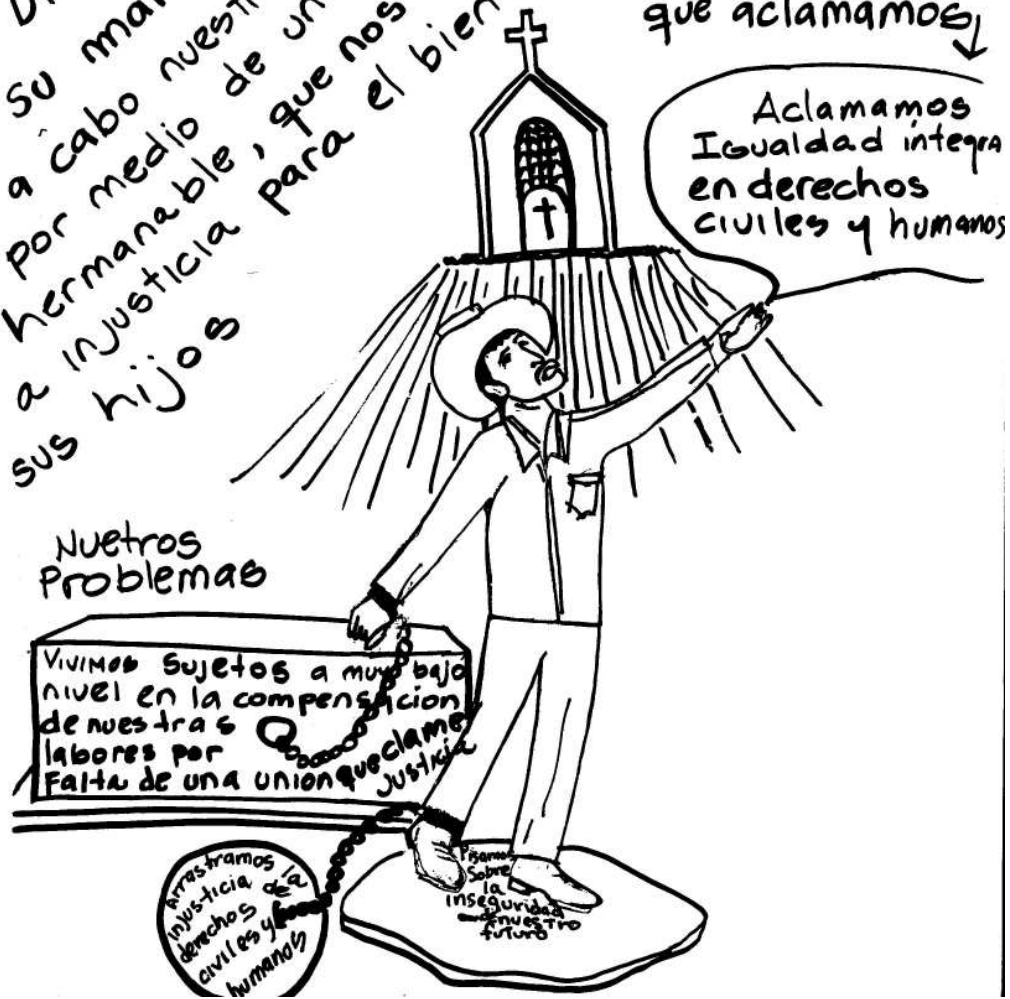 su
a cabo nuestr
por medio de un
hermanable, que nos
a injusticia para el bien
sus hijos
que aclamamos
Aclamamos
Igualdad integra
en derechos
civiles y humanos
Nuetros
Problemas
Vivimos sujetos a muy bajo
nivel en la compensacion
de nuestras
labores por
Falta de una union que clame
justicia
Arrastramos la
injusticia de
derechos
civiles y
humanos
Pisamos
Sobre
la
inseguridad
nuestro
futuro